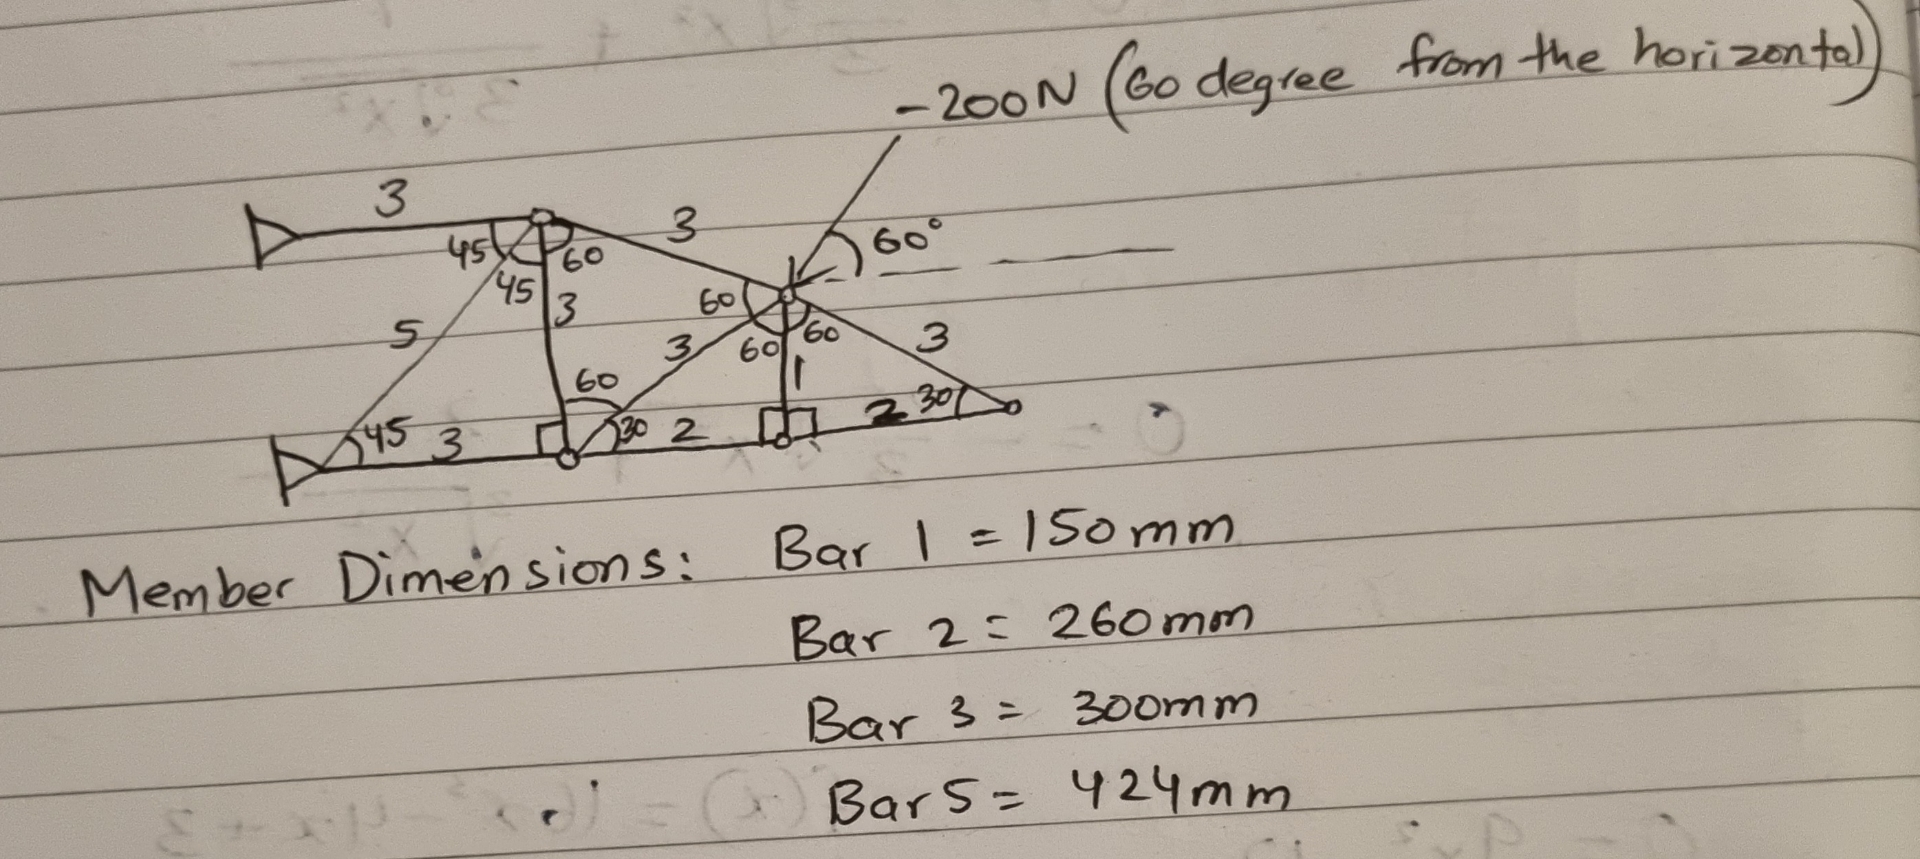 -200N (60 degree from the horizontal)
3
3
60°
45
60
45
3
60
5
3
60
60
3
1
60
45
3
30
2
2
30
Member Dimensions: Bar 1 = 150mm
Bar 2 = 260mm
Bar 3 = 300mm
Bar 5 = 424mm